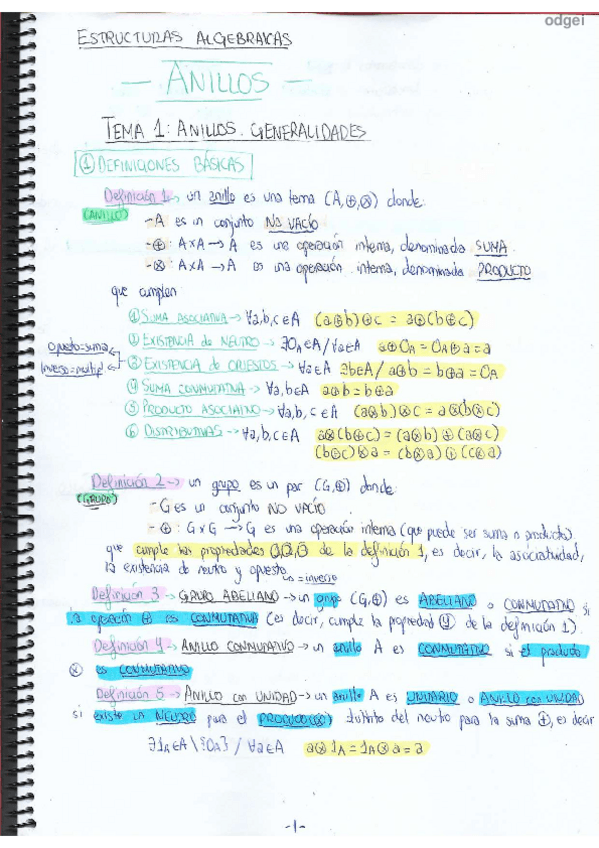 odgei
ESTRUCTURAS ALGEBRAICAS
- ANILLOS -
TEMA 1: ANILLOS. GENERALIDADES
① DEFINICIONES BÁSICAS
Definición 1 → un anillo es una terna (A,⊕,⊗) donde:
(ANILLO)
- A es un conjunto NO VACÍO
- ⊕: A×A → A es una operación interna, denominada SUMA
- ⊗: A×A → A es una operación interna, denominada PRODUCTO
que cumplen:
① SUMA ASOCIATIVA → ∀a,b,c∈A (a⊕b)⊕c = a⊕(b⊕c)
② EXISTENCIA de NEUTRO → ∃0_A∈A / ∀a∈A a⊕0_A = 0_A⊕a = a
opuesto=suma
inverso=multipl
③ EXISTENCIA de OPUESTOS → ∀a∈A ∃b∈A / a⊕b = b⊕a = 0_A
④ SUMA CONMUTATIVA → ∀a,b∈A a⊕b = b⊕a
⑤ PRODUCTO ASOCIATIVO → ∀a,b,c∈A (a⊗b)⊗c = a⊗(b⊗c)
⑥ DISTRIBUTIVAS → ∀a,b,c∈A a⊗(b⊕c) = (a⊗b)⊕(a⊗c)
(b⊕c)⊗a = (b⊗a)⊕(c⊗a)
Definición 2 → un grupo es un par (G,⊕) donde:
(GRUPO)
- G es un conjunto NO VACÍO
- ⊕: G×G → G es una operación interna (que puede ser suma o producto)
que cumple las propiedades ①,②,③ de la definición 1, es decir, la asociatividad,
la existencia de neutro y opuesto.
↳ = inverso
Definición 3 → GRUPO ABELIANO → un grupo (G,⊕) es ABELIANO o CONMUTATIVO si
la operación ⊕ es CONMUTATIVA (es decir, cumple la propiedad ④ de la definición 1).
Definición 4 → ANILLO CONMUTATIVO → un anillo A es CONMUTATIVO si el producto
⊗ es CONMUTATIVO
Definición 5 → ANILLO con UNIDAD → un anillo A es UNITARIO o ANILLO con UNIDAD
si existe UN NEUTRO para el PRODUCTO (⊗) distinto del neutro para la suma ⊕, es decir
∃1_A∈A\{0_A} / ∀a∈A a⊗1_A = 1_A⊗a = a
-1-